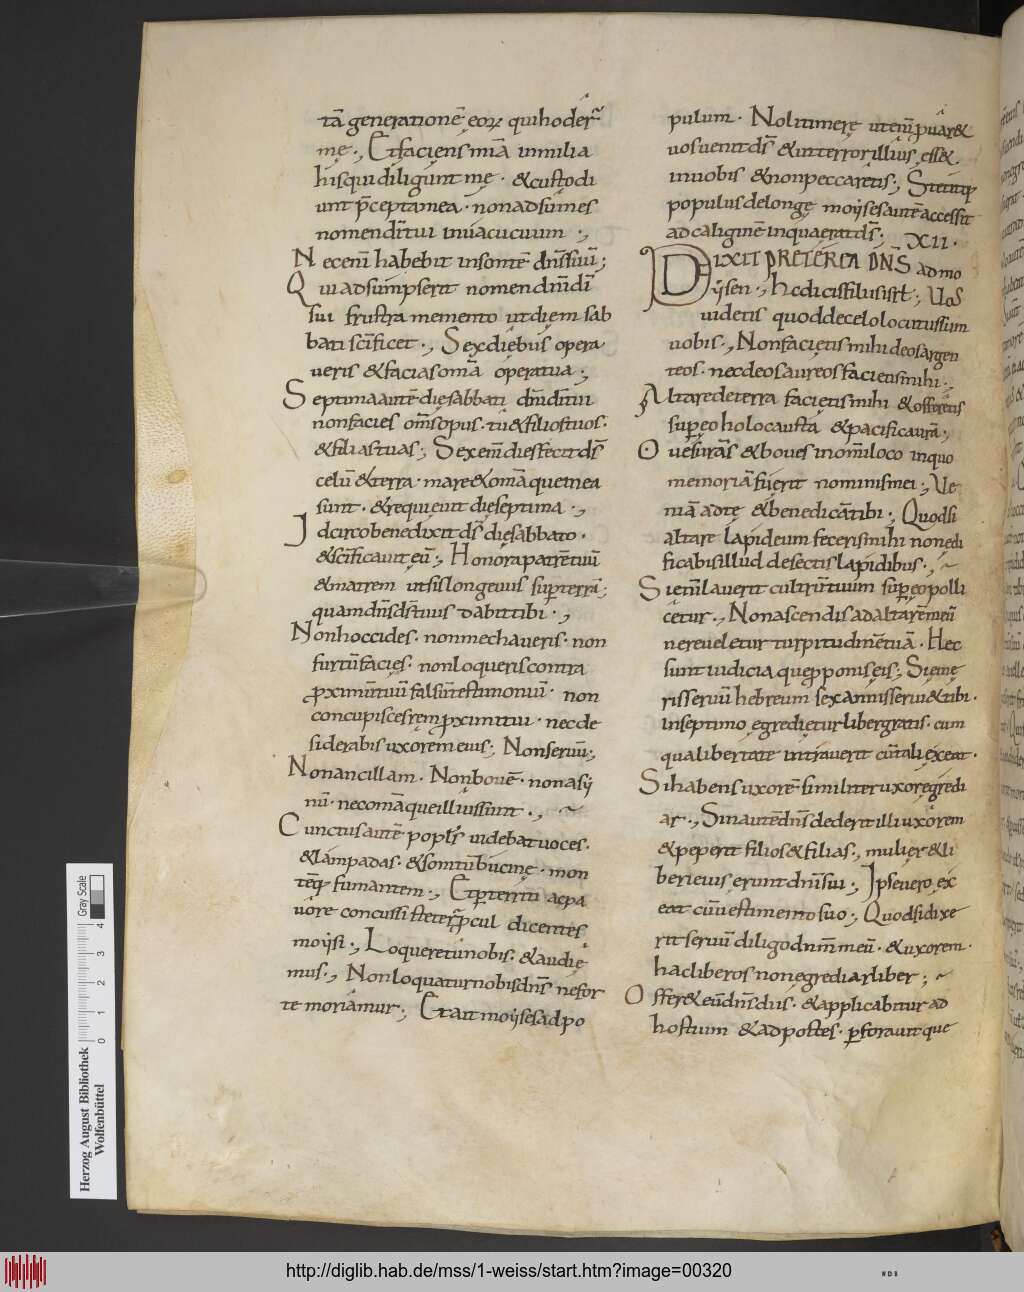 tā generationē eoꝝ qui hoder̄
me ·, Et faciens mīa in milia
his qui diligunt me · & custodi
unt p̄cepta mea · non adsumes
nomen dn̄i tui in uacuum ·,
Nec enī habebit insontē dn̄s suū ;
Qui adsumpserit nomen dn̄i dī
sui frustra memento ut diem sab
bati scīficet ·, Sex diebus opera
ueris & facias omā opera tua ·,
Septima autē die sabbati dn̄i dī tui
non facies om̄s opus · tu & filius tuos ·
& filias tuas ·, Sex enī dies fecit ds̄
celū & terra · mare & omā que in ea
sunt · & requieuit die septima ·,
Idcirco benedixit ds̄ die sabbato ·
& scīficauit eū ·, Honora patrē tuū
& matrem ut sis longeuus sup̄ terrā ;
quam dn̄s ds̄ tuus dabit tibi ·,
Non hoccides · non mechaueris · non
furtū facies · non loqueris contra
proximū tuū falsū testimoniū · non
concupisces rem proximi tui · nec de
siderabis uxorem eius ; Non seruū ;
Non ancillam · Non bouē · non asij
nū · nec omā que illius sunt ·, ~
Cunctus autē popl̄s uidebat uoces ·
& lampadas · & sonitū bucine · mon
tēq fumantem ·, Et p̄territi ac pa
uore concussi stetert̄ procul dicentes
moÿsi ·, Loquere tu nobis · & audie
mus ·, Non loquatur nobis dn̄s ne for
te moriamur ·, Et ait moÿses ad po
pulum · Nolitimere ut enī p̄uar&
uos uenit ds̄ & ut terror illius ess&
in uobis & non peccaretis ·, Stetitq
populus de longe moÿses autē accessit
ad caliginē in qua erat ds̄ ; XII ·
DIXIT PRETEREA DN̄S ad mo
ÿsen ·, hec dicis filiis isrl̄ ; Uos
uidetis quod de celo locutus sum
uobis ·, Non facietis mihi deos argen
teos · nec deos aureos facietis mihi ·,
Altare de terra facietis mihi & offeretis
super eo holocausta & pacifica urā ·,
Oues urās & boues in om̄i loco in quo
memoriā fuerit nominis mei ·, Ue
niā ad te & benedicā tibi ·, Quod si
altare lapideum feceris mihi non edi
ficabis illud de sectis lapidibus ·, ~
Si enī lauerit cultrū tuum sup eo polli
cetur ·, Non ascendis ad altarē meū
ne reueletur turpitudinē tuā · Hec
sunt iudicia que p̄ponis eis ·, Si eme
ris seruū hebreum sex annis seruiet tibi ·
in septimo egredietur liber gratis · cum
qua libertate intrauerit cū tali exeat ·
Si habens uxorē similiter uxor egredi
ar ·, Sin autē dn̄s dederit illi uxorem
& peperit filios & filias ·, mulier & li
beri eius erunt dn̄i sui ·, Ipse uero ex
eat cū uestimento suo ·, Quod si dixe
rit seruū diligo dnm̄ meū · & uxorem ·
hac liberos non egrediar liber ; ~
Offer& eū dn̄s diis · & applicabitur ad
hostium & ad postes · p̄forauitque
Herzog August Bibliothek
Wolfenbüttel
Gray Scale
0 1 2 3 4
http://diglib.hab.de/mss/1-weiss/start.htm?image=00320